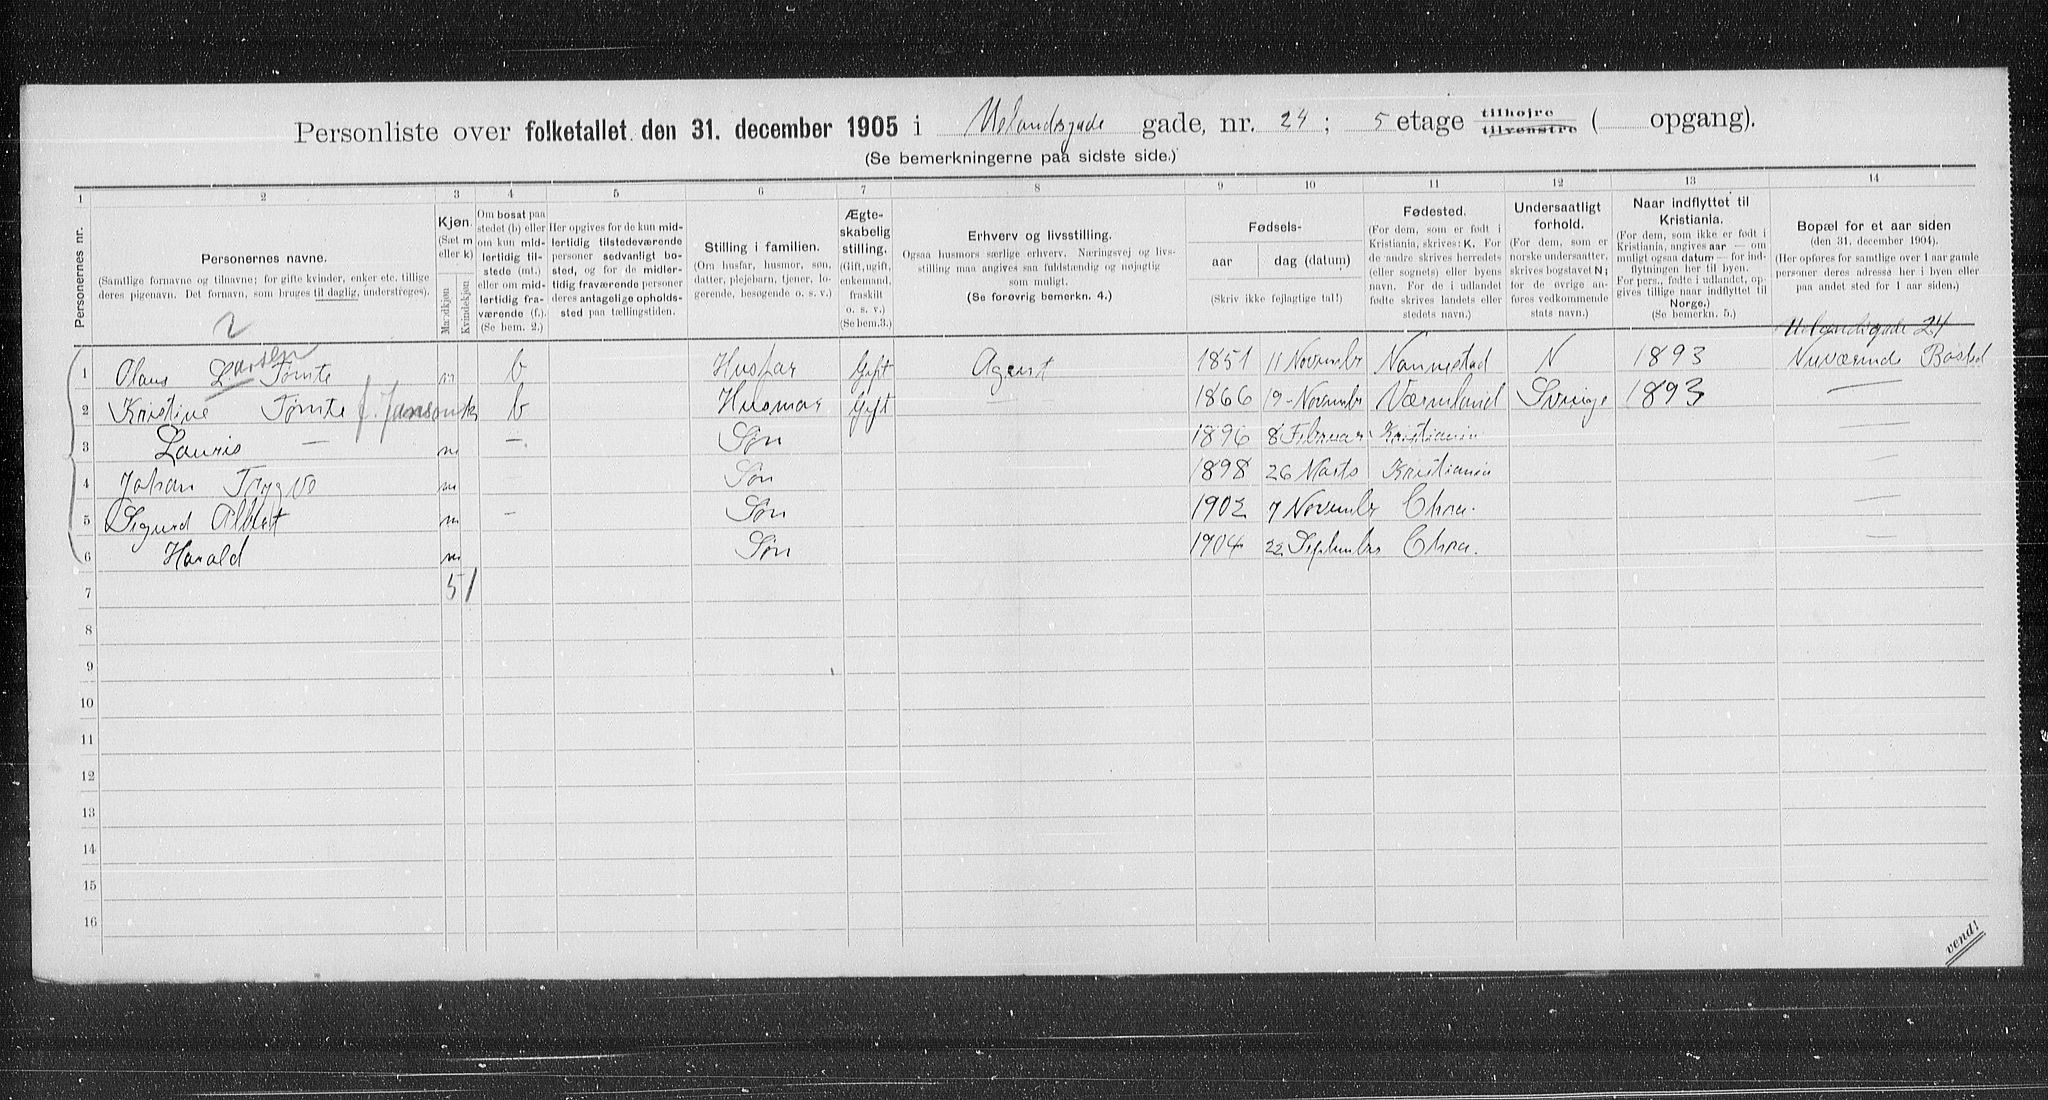 Personliste over folketallet den 31. december 1905 i Uelandsgade gade, nr. 24; 5 etage tilhøjre tilvenstre ( opgang).
(Se bemerkningerne paa sidste side.)
1 2 3 4 5 6 7 8 9 10 11 12 13 14
Personernes nr.
Personernes navne.
(Samtlige fornavne og tilnavne; for gifte kvinder, enker etc. tillige
deres pigenavn. Det fornavn, som bruges til daglig, understreges).
2
Kjøn.
(Sæt m
eller k)
Mandkjøn
Kvindekjøn
Om bosat paa
stedet (b) eller
om kun mid-
lertidig til-
stede (mt.)
eller om mid-
lertidig fra-
værende (f.).
(Se bem. 2.)
Her opgives for de kun mid-
lertidig tilstedeværende
personer sedvanligt bo-
sted, og for de midler-
tidig fraværende personer
deres antagelige opholds-
sted paa tællingstiden.
Stilling i familien.
(Om husfar, husmor, søn,
datter, plejebarn, tjener, lo-
gerende, besøgende o. s. v.)
Ægte-
skabelig
stilling.
(Gift, ugift,
enkemand,
fraskilt
o. s. v.)
(Se bem.3.)
Erhverv og livsstilling.
Ogsaa husmors særlige erhverv. Næringsvej og livs-
stilling maa angives saa fuldstændig og nøjagtig
som muligt.
(Se forøvrig bemerkn. 4.)
Fødsels-
aar dag (datum)
(Skriv ikke fejlagtige tal!)
Fødested.
(For dem, som er født i
Kristiania, skrives: K. For
de andre skrives herredets
(eller sognets) eller byens
navn. For de i udlandet
fødte skrives landets eller
stedets navn.)
Undersaatligt
forhold.
(For dem, som er
norske undersaatter,
skrives bogstavet N;
for de øvrige an-
føres vedkommende
stats navn.)
Naar indflyttet til
Kristiania.
(For dem, som ikke er født i
Kristiania, angives aar — om
muligt ogsaa datum — for ind-
flytningen her til byen.
For pers., fødte i udlandet, op-
gives tillige naar indflyttet til
Norge.)
(Se bemerkn. 5.)
Bopæl for et aar siden
(den 31. december 1904).
(Her opføres for samtlige over 1 aar gamle
personer deres adresse her i byen eller
paa andet sted for 1 aar siden.)
Uelandsgade 24
1 Olaus Larsen Tømte m b Husfar Gift Agent 1851 11 November Nannestad N 1893 Nuværende Bosted
2 Kristine Tømte f. Janson k b Husmor Gift — 1866 19 - November Værmland Sverige 1893 —
3 Lauris — m — Søn 1896 8 Februar Kristiania —
4 Johan Trygve m — Søn 1898 26 Marts Kristiania —
5 Sigurd Albert m — Søn 1902 7 November Chra. —
6 Harald m Søn 1904 22 September Chra. —
7 5 1
8
9
10
11
12
13
14
15
16
vend!